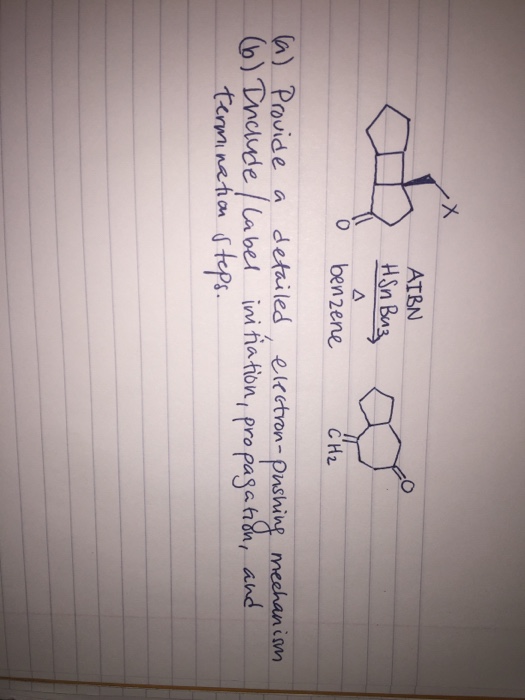 X
O
AIBN
HSnBu3
Δ
benzene
O
CH2
(a) Provide a detailed, electron-pushing mechanism
(b) Include/label initiation, propagation, and
termination steps.